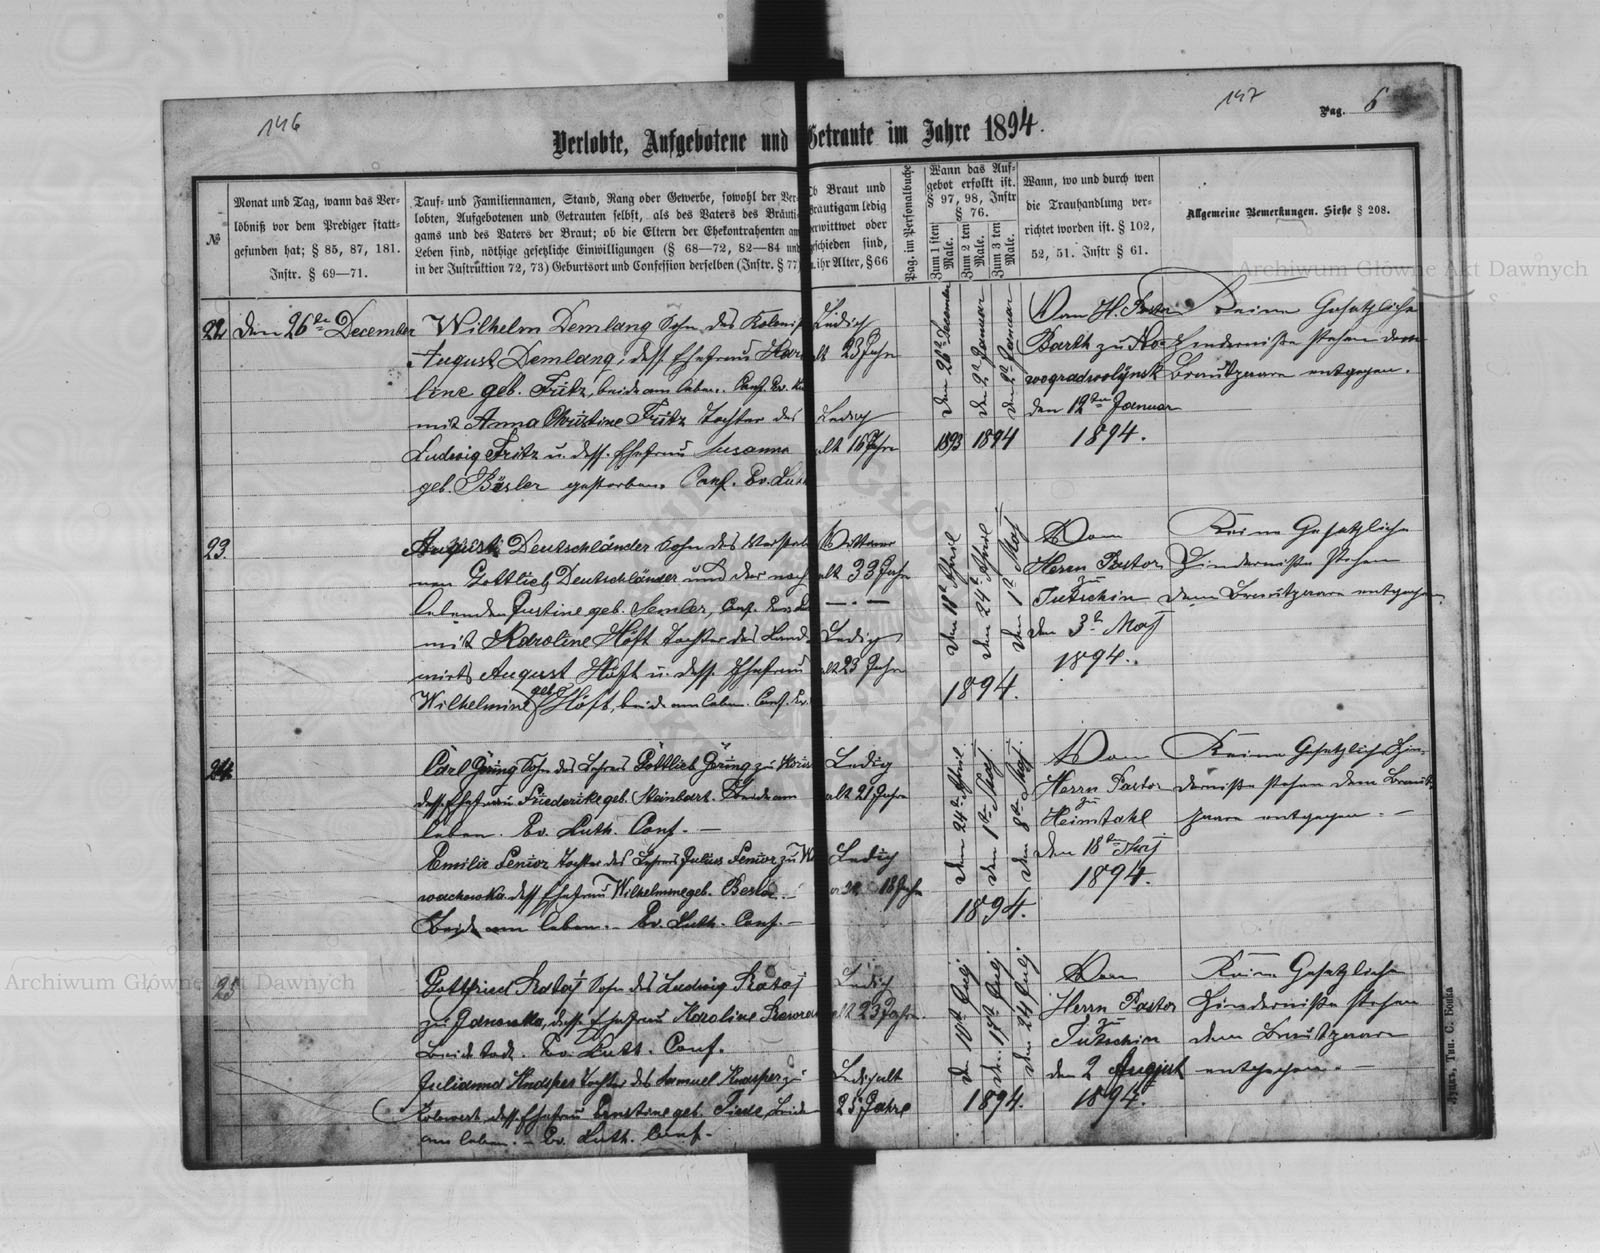 146
147
Pag. 6
Verlobte, Aufgebotene und Getraute im Jahre 1894.
№
Monat und Tag, wann das Ver-
löbniß vor dem Prediger statt-
gefunden hat; § 85, 87, 181.
Instr. § 69—71.
Tauf- und Familiennamen, Stand, Rang oder Gewerbe, sowohl der Ver-
lobten, Aufgebotenen und Getrauten selbst, als des Vaters des Bräuti-
gams und des Vaters der Braut; ob die Eltern der Ehekontrahenten am
Leben sind, nöthige gesetzliche Einwilligungen (§ 68—72, 82—84 und
in der Instruktion 72, 73) Geburtsort und Confession derselben (Instr. § 77)
Ob Braut und
Bräutigam ledig
verwittwet oder
geschieden sind,
ihr Alter, § 66
Pag. im Personalbuche
Wann das Auf-
gebot erfolgt ist.
§ 97, 98, Instr
§ 76.
Zum 1 sten Male.
Zum 2 ten Male.
Zum 3 ten Male.
Wann, wo und durch wen
die Trauhandlung ver-
richtet worden ist. § 102,
52, 51. Instr § 61.
Allgemeine Bemerkungen. Siehe § 208.
Archiwum Główne Akt Dawnych
22
den 26ten December
Wilhelm Demlang Sohn des Kolonist
August Demlang, dess. Ehefrau Karo
line geb. Fritz, beide am leben. Conf. Ev. Lu
mit Anna Christine Fritz Tochter des
Ludwig Fritz u. dess. Ehefrau Susanna
geb. Bäsler gestorben. Conf. Ev. Luth
Ledig
alt 23 Jahr
Ledig
alt 16 Jahr
den 26ten December
1893
den 2ten Januar
den 9ten Januar
1894
Vom H. Pastor
Barth zu No-
wogradwolynsk
den 12ten Januar
1894.
Keine Gesetzliche
Hinderniße stehen dem
Brautpaare entgegen.
23.
August Deutschländer Sohn des Verstorbe
nen Gottlieb Deutschländer und der noch
lebenden Justine geb. Semler, Conf. Ev. Lu
mit Karoline Höft Tochter des Land
wirts August Höft u. dess. Ehefrau
Wilhelmine geb. Höft, beide am leben. Conf. Ev.
Wittwer
alt 33 Jahr
— · —
Ledig
alt 23 Jahr
den 18ten April
den 24ten April
den 1ten Maj
1894.
Vom
Herrn Pastor
zu
Tutschin
den 3ten Maj
1894.
Keine Gesetzliche
Hinderniße stehen
dem Brautpaare entgegen.
24.
Carl Göring Sohn des Lehrers Gottlieb Göring zu
dess. Ehefrau Friederike geb. Steinbart. Beide am
leben. Ev. Luth. Conf. —
Emilie Fenior Tochter des Lehrers Julius Fenior zu
dess. Ehefrau Wilhelmine geb.
Beide am leben. — Ev. Luth. Conf. —
Ledig
alt 21 Jahre
Ledig
18 Jahr
den 24ten April
den 1ten Maj
den 8ten Maj
1894.
Vom
Herrn Pastor
zu
Heimtahl
den 18ten Maj
1894.
Keine Gesetzliche Hin-
derniße stehen dem Braut-
paare entgegen. —
25
Gottfried Rataj Sohn des Ludwig Rataj
zu Janowka, dess. Ehefrau Karoline
Beide todt. Ev. Luth. Conf.
Julianna Knosper Tochter des Samuel Knosper zu
dess. Ehefrau Ernstine geb. Tiede, beide
am leben. — Ev. Luth. Conf.
Ledig
alt 23 Jahre.
Ledig alt
25 Jahre
den 10ten Julj
den 17ten Julj
den 24 Julj
1894.
Vom
Herrn Pastor
zu
Tutschin
den 2 August
1894.
Keine Gesetzliche
Hinderniße stehen
dem Brautpaare
entgegen. —
Archiwum Główne Akt Dawnych